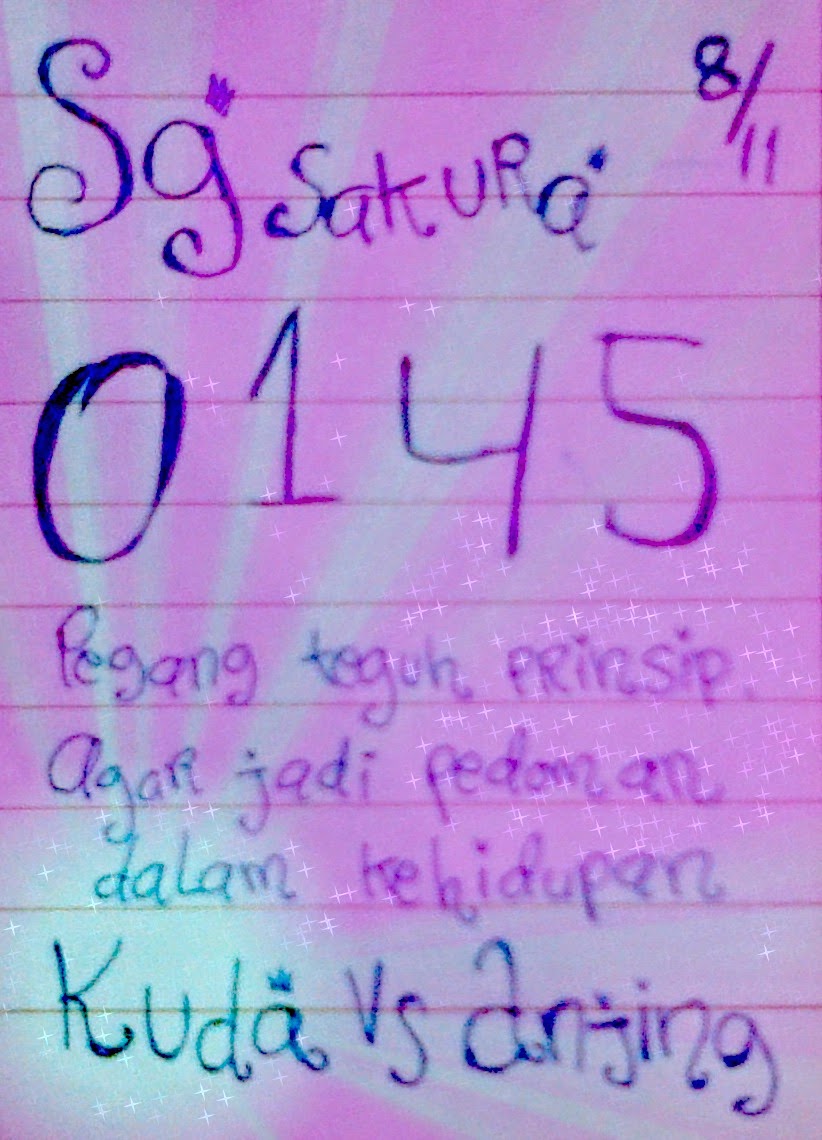 Sg Sakura 8/11
0145
Pegang teguh prinsip.
Agar jadi pedoman
dalam kehidupan
Kuda Vs Anjing